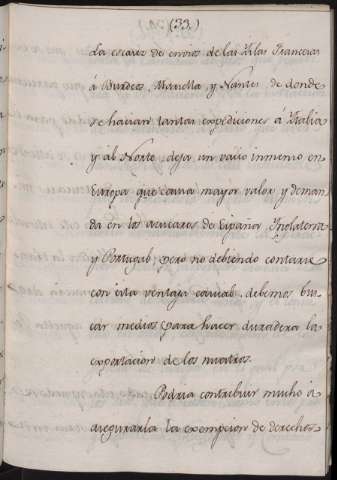 (33)
La escasez de envios de las Yslas Francesas
á Burdeos, Marsella, y Nantes de donde
se hacian tantas expediciones á Ytalia
y al Norte, deja un vacio inmenso en
Europa que causa mayor valor y deman-
da en los azucares de España, Ynglaterra
y Portugal; pero no debiendo contarse
con esta ventaja casual, debemos bus-
car medios para hacer duradera la
exportacion de los nuestros.
Podria contribuir mucho á
asegurarla la exempcion de derechos